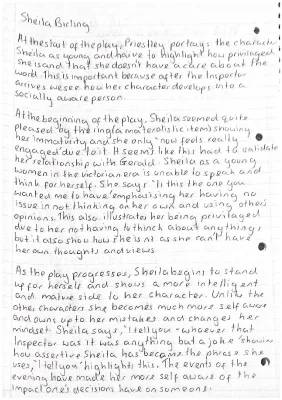 Sheila Birling
At the start of the play, Priestley portrays the character
Sheila as young and naive to highlight how privileged
she is and that she doesn't have a care about the
word. This is important because after the Inspector
arrives we see how her character develops into a
socially aware person.
At the beginning of the play, Sheila seemed quite
pleased by the ring (a materalistic item) showing
her immaturity and she only "now feels really
engaged" due to it. It seems like this had to validate
her relationship with Gerald. Sheila as a young
women in the victorian era is unable to speak and
think for herself. She says "is this the one you
wanted me to have" emphasising her having no
issue in not thinking on her own and using others
opinions. This also illustrates her being privilaged
due to her not having to think about anything,
but it also show how she isnt as she can't have
her own thoughts and views.
As the play progresses, Sheila begins to stand
up for herself and shows a more intelligent
and mature side to her character. Unlike the
other characters she becomes much more self aware
and owns up to her mistakes and changes her
mindset. Sheila says, "I tell you - whoever that
Inspector was it was anything but a joke" showing
how assertive Sheila has became the phrase she
uses, "I tell you" highlights this. The events of the
evening have made her more self aware of the
impact one's decisions have on someone.